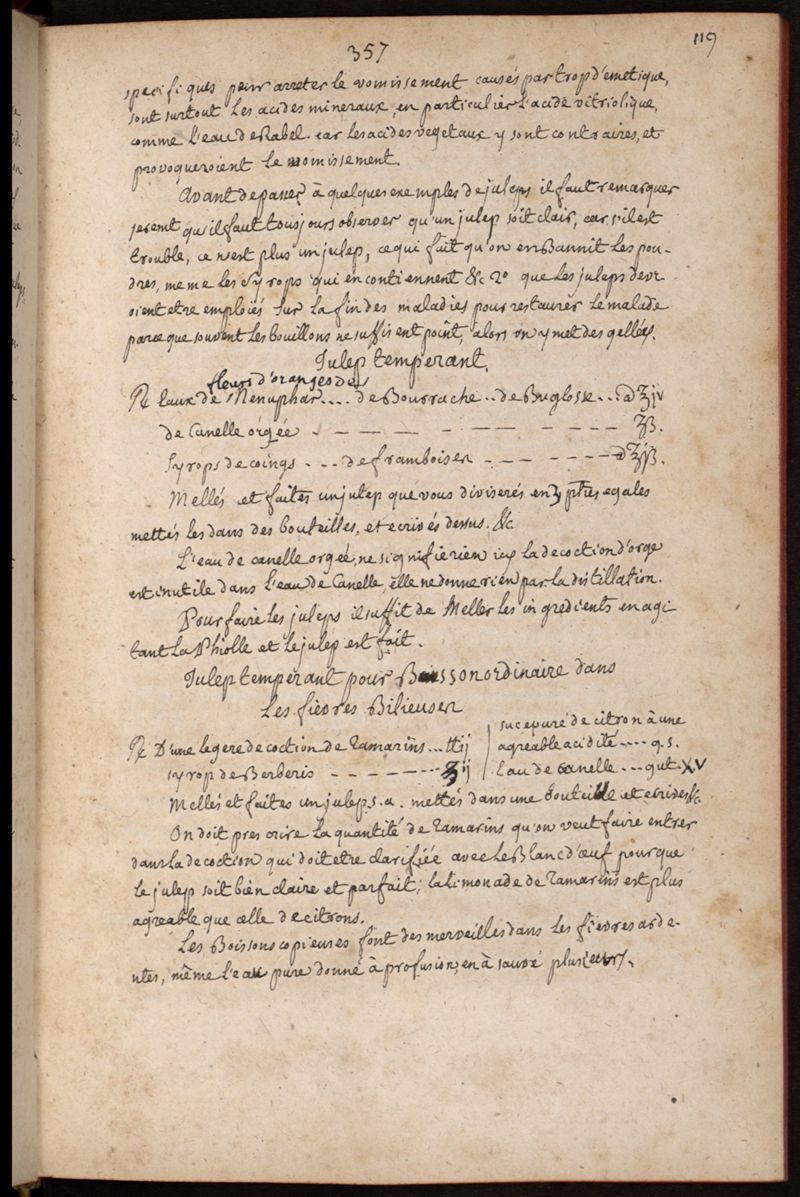 357
119
specifiques pour arreter le vomissement causés par trop d'emetique,
sont surtout les acides mineraux, en particulier l'acide vitriolique,
comme l'eau de Rabel. car les acides vegetaux y sont contraires, et
provoqueroient le vomissement.
Avant de passer à quelques exemples de juleps il faut remarquer
qu'il faut tousjours observer qu'un julep soit clair, car s'il est
trouble, ce n'est plus un julep, ce qui fait qu'on en Bannit les pou-
dres, meme les syrops qui en contiennent &c 2° que les juleps devr-
oient etre emploiés sur la fin des maladies pour restaurer le malade
parce que souvent les bouillons ne suffisent point, alors on y met des gellées.
Julep temperant.
fleurs d'oranges de
℞ Eaux de Nenuphar.... de Bourrache.. de Buglosse... ʒiv
de Canelle orgée — — — — — — — — ʒß.
syrops de coings - - .. de framboises - - — - - - - ʒjß.
Mellés et faites un julep que vous diviserés en 3 ptres egales
mettés les dans des bouteilles, et ecrivés dessus. &c
L'eau de canelle orgée, ne signifie rien icy la decoction d'orge
est inutile dans l'eau de Canelle, elle ne donne rien par la distillation.
Pour faire les juleps il suffit de Meller les ingredients en agi
tant la Phiolle et le julep est fait.
Julep temperant pour Boisson ordinaire dans
Les fievres Bilieuses
℞ D'une legere decoction de Tamarins... ℔ij
syrop de Berberis - - - - - - - ʒij
suc epuré de citron à une
agreable acidité .... q. s.
l'eau de canelle ... gut. XV
Mellés et faites un julep s. a. mettés dans une bouteille et ecrives &c
On doit prescrire la quantité de Tamarins qu'on veut faire entrer
dans la decoction qui doit etre clarifiée avec le Blanc d'œuf pour que
le julep soit bien claire et parfait; la limonade de Tamarins est plus
agreable que celle de citrons.
Les Boissons copieuses font des merveilles dans les fievres arde-
ntes, même l'eau pure donné à profusion, en à sauvé plusieurs.